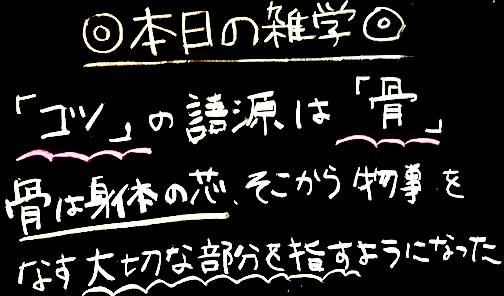 ◎本日の雑学◎
「コツ」の語源は「骨」
骨は身体の芯、そこから物事を
なす大切な部分を指すようになった